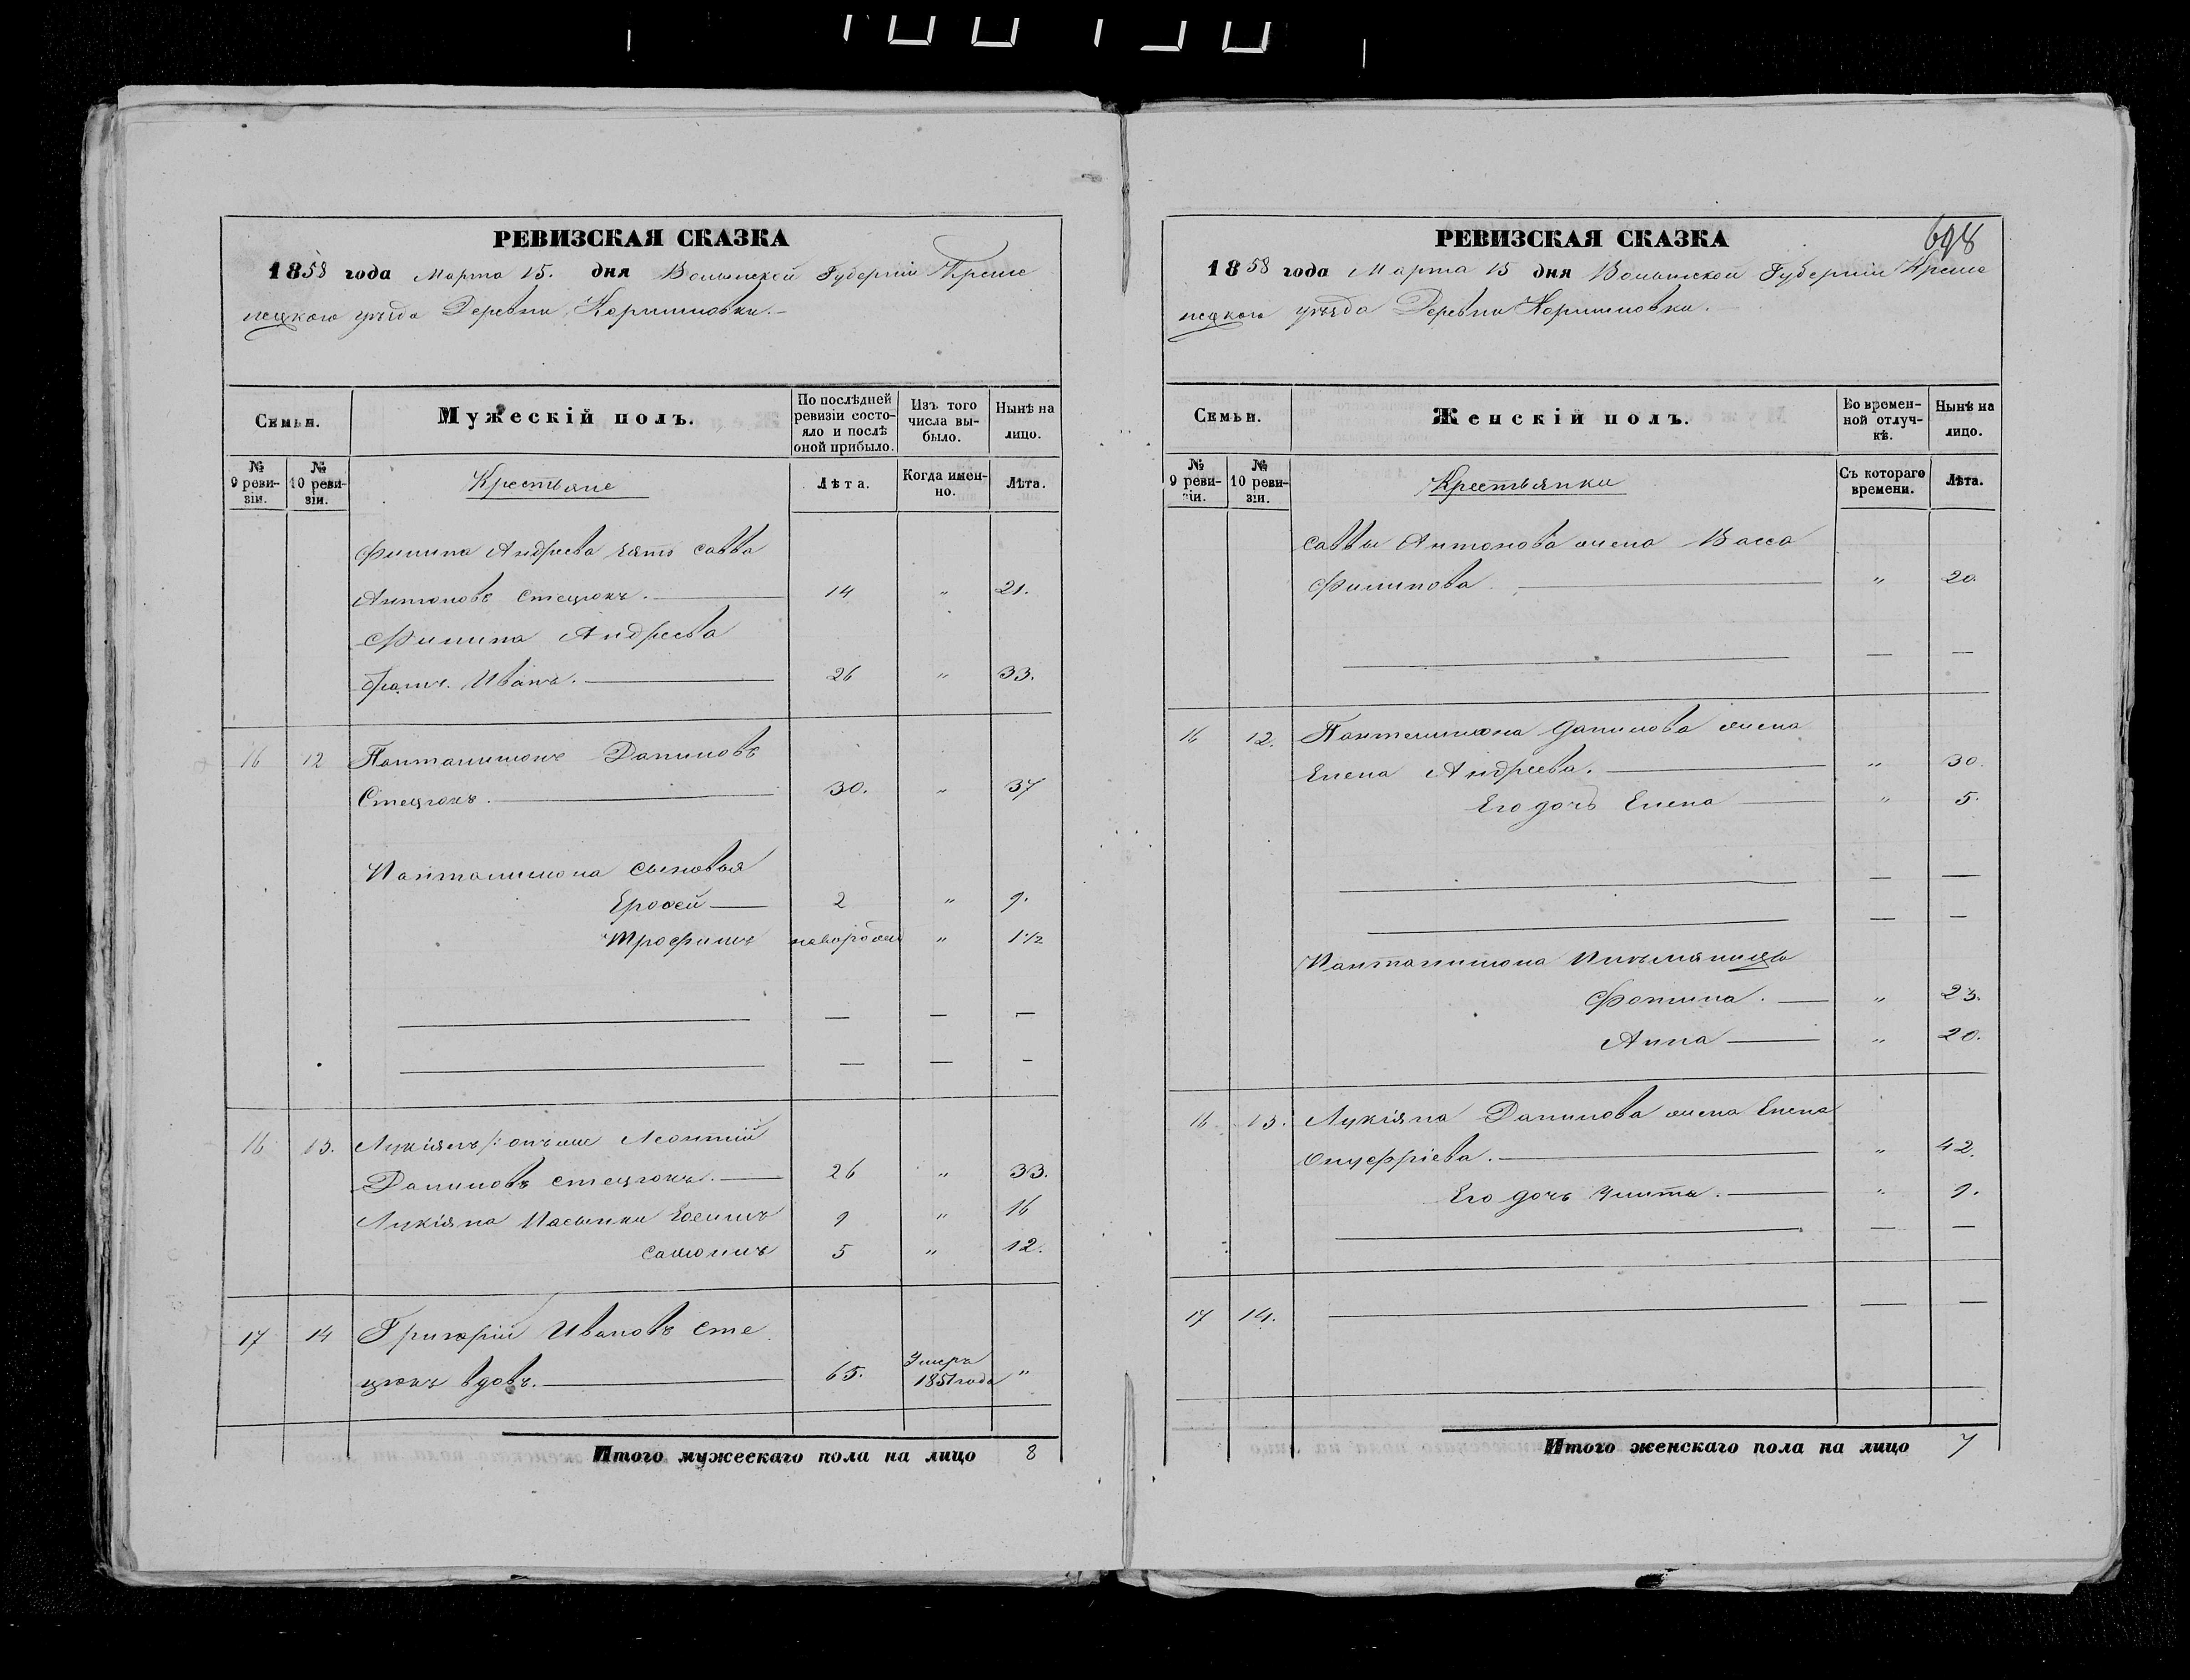 РЕВИЗСКАЯ СКАЗКА
1858 года Марта 15. дня Волынской Губерніи Креме
нецкого уѣзда Деревни Коршиловки.
Семьи.
Мужескій полъ.
По послѣдней ревизіи состояло и послѣ оной прибыло.
Изъ того числа выбыло.
Нынѣ на лицо.
№ 9 ревизіи.
№ 10 ревизіи.
Крестьяне
Лѣта.
Когда именно.
Лѣта.
Филипа Андреева зять савва
Антоновъ Стецюкъ. 14 " 21.
Филипа Андреева
братъ Иванъ. 26 " 33.
16 12 Панталимонъ Даниловъ
Стецюкъ. 30. " 37
Панталимона сыновья
Ерофей 2 " 9.
Трофимъ новорожден " 1 1/2
16 13. Лукіянъ /: онъ же Леонтій
Даниловъ стецюкъ. 26 " 33.
Лукіяна Пасынки 9 " 16
5 " 12.
17 14 Григорій Ивановъ Сте
цюкъ вдовъ. 65. Умеръ 1851 года "
Итого мужескаго пола на лицо 8
698
РЕВИЗСКАЯ СКАЗКА
1858 года Марта 15 дня Волынской Губерніи Креме
нецкого уѣзда Деревни Коршиловки.
Семьи.
Женскій полъ.
Во временной отлучкѣ.
Нынѣ на лицо.
№ 9 ревизіи.
№ 10 ревизіи.
Крестьянки
Съ котораго времени.
Лѣта.
саввы Антонова жена Васса
Филипова " 20.
16 12. Пантелимона Данилова жена
Елена Андреева. " 30.
Его дочь Елена " 5.
Панталимона Племяницы
Фотина. " 23.
Анна " 20.
16 13. Лукіяна Данилова жена Елена
Онуфріева. " 42.
Его дочь " 9.
17 14.
Итого женскаго пола на лицо 7